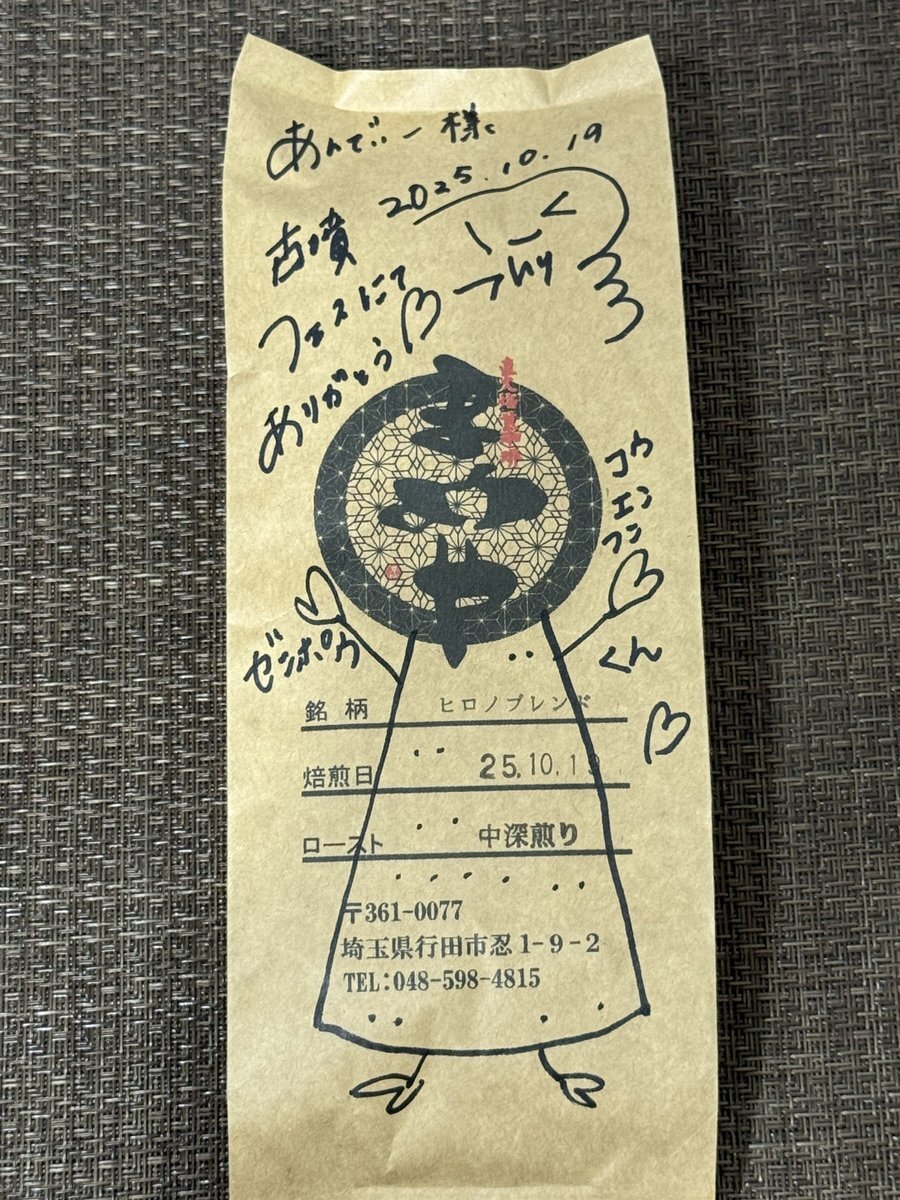 あんでぃー様
2025.10.19
古墳
フェスにて
ありがとう
コウ
エン
フン
ゼンポウ
くん
銘柄 ヒロノブレンド
焙煎日 25.10.19
ロースト 中深煎り
〒361-0077
埼玉県行田市忍1-9-2
TEL:048-598-4815